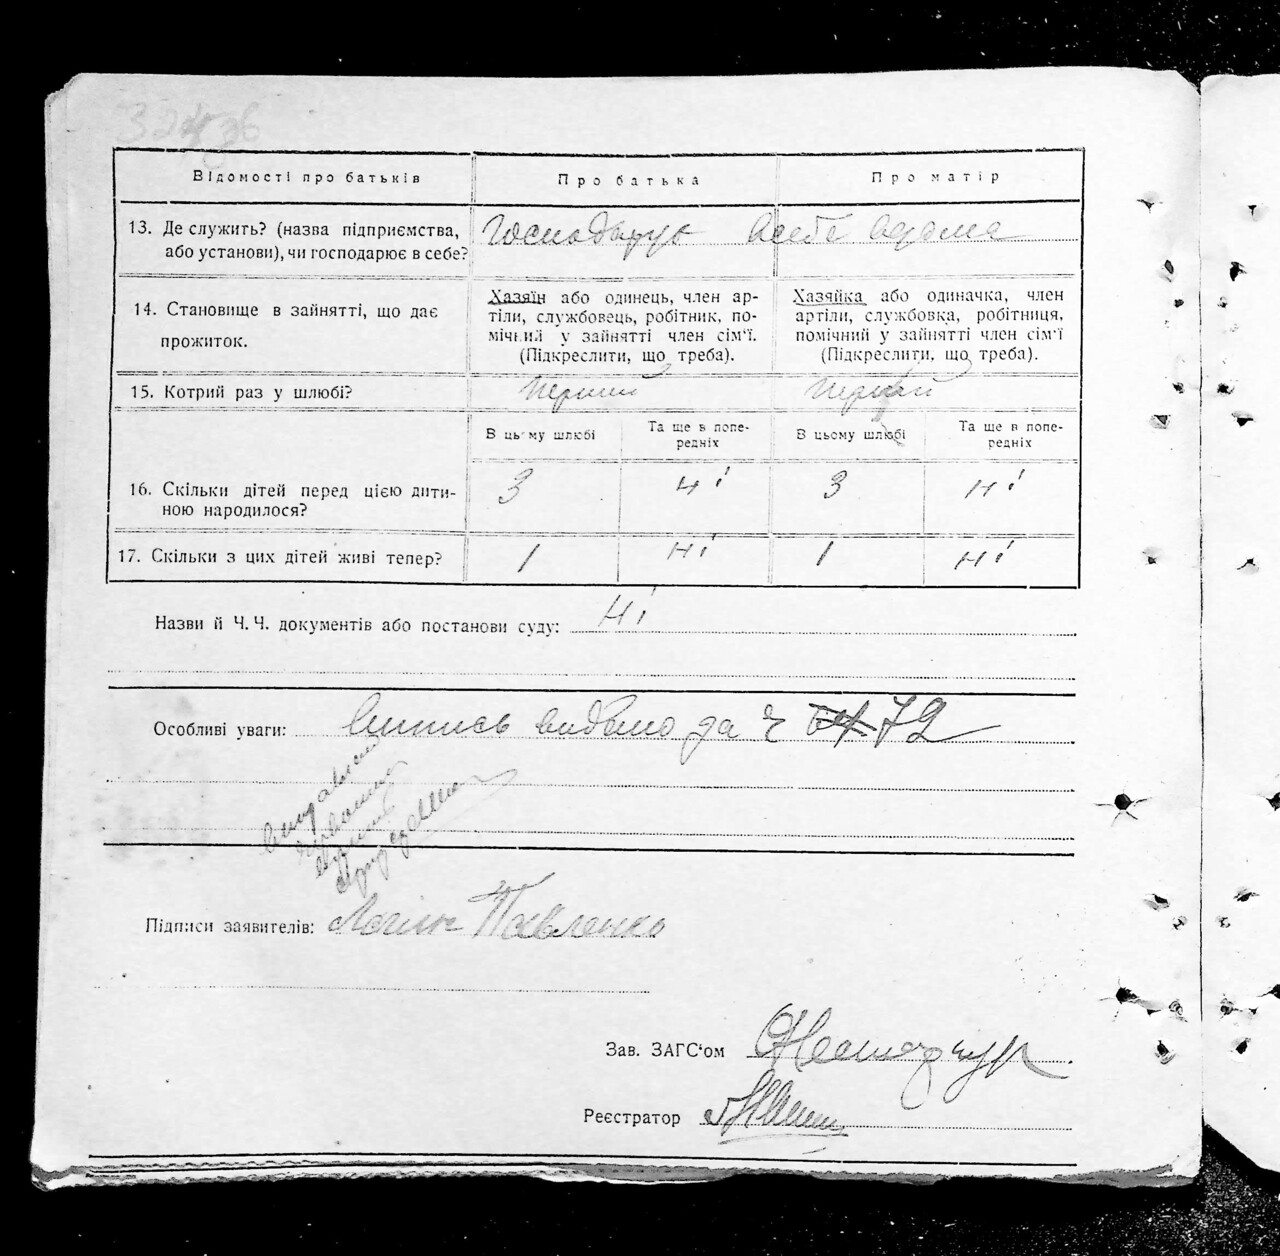 Відомості про батьків Про батька Про матір
13. Де служить? (назва підприємства, або установи), чи господарює в себе?
Господарує
14. Становище в зайнятті, що дає прожиток.
Хазяїн або одинець, член ар-
тіли, службовець, робітник, по-
мічний у зайнятті член сім'ї.
(Підкреслити, що треба).
Хазяйка або одиначка, член
артіли, службовка, робітниця,
помічний у зайнятті член сім'ї
(Підкреслити, що треба).
15. Котрий раз у шлюбі? Перший Перший
В цьому шлюбі Та ще в попе-
редніх В цьому шлюбі Та ще в попе-
редніх
16. Скільки дітей перед цією дити-
ною народилося? 3 Ні 3 Ні
17. Скільки з цих дітей живі тепер? 1 Ні 1 Ні
Назви й Ч. Ч. документів або постанови суду: Ні
Особливі уваги: Випись видано за ч 72
Підписи заявителів: Павленко
Зав. ЗАГС'ом
Реєстратор